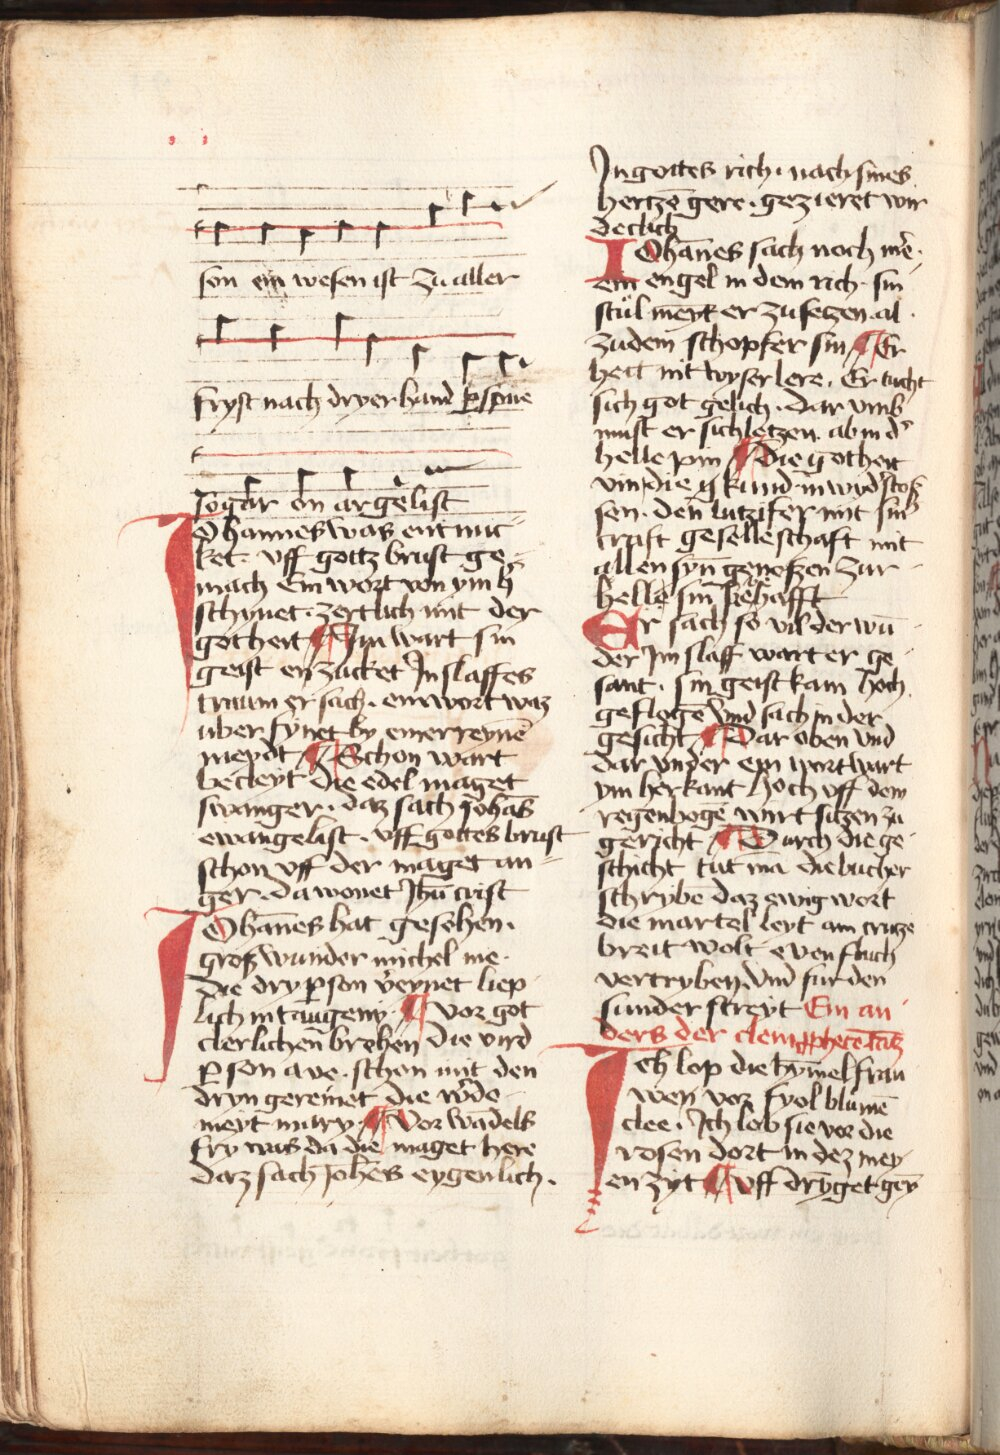 son ein wesen ist zu aller
fryst nach dryer hand ꝑsone
sogar on argelist
Johannes was entnuc
ket · vff gottz brust ge
mach Ein wort von ym h̄
schynet · zertlich mit der
gotheit ¶ Im wart sin
geist enzucket In slaffes
traum er sach · ein wort waz
uber synet by einer reynē
meydt ¶ Schon wart
becleyt die edel maget
swanger · daz sach Johās
ewangelist · vff gottes brust
schon vff der maget an
ger · da wonet Jhū crist
Johāes hat gesehen ·
groß wunder michel me ·
die dry ꝑson v̄eynet liep
lich in taugeny · ¶ vor got
clerlichen̄ brehen die vird
ꝑson ave · schon mit den
dryn gereinet die w̄de
meyt mary · ¶ Vor wādels
fry was da die maget here
daz sach Johēs eygenlich ·
In gottes rich · nach sines
hertzē gere · gezieret wir
declich
Johāes sach noch mē ·
ein engel in dem rich · sin
stůl meynt er zu setzen · al
zu dem schopfer sin ¶ Er
hett nit wyser lere · Er tucht
sich got gelich · dar vmb
must er sich letzen · ab in d̓
helle pin ¶ Die gotheit
vnd stoß
sen · den lutzifer mit sin̓
craft geselleschaft mit
allen syn̄ genoßen zur
helle sin hafft
Er sach so vil der wū
der Im slaff wart er ge
sant · sin geist kam hoch
geflogē vnd sach in der
gesicht ¶ Dar oben vnd
dar vnder ein wort wart
ym herkant hoch vff dem
regenbogē wirt sitzen zu
gericht ¶ Durch die ge
schicht tut mā die bucher
schrybē daz ewig wort
die martel leyt am cruze
breit wolt even fluch
vertryben · vnd fur den
sunder streyt Ein an
ders der clem
Ich lop die hȳmelfrau
wen vor fyol blůmē
clee · Ich lob sie vor die
rosen dort in dez mey
en zyt ¶ vff dryget gen̄